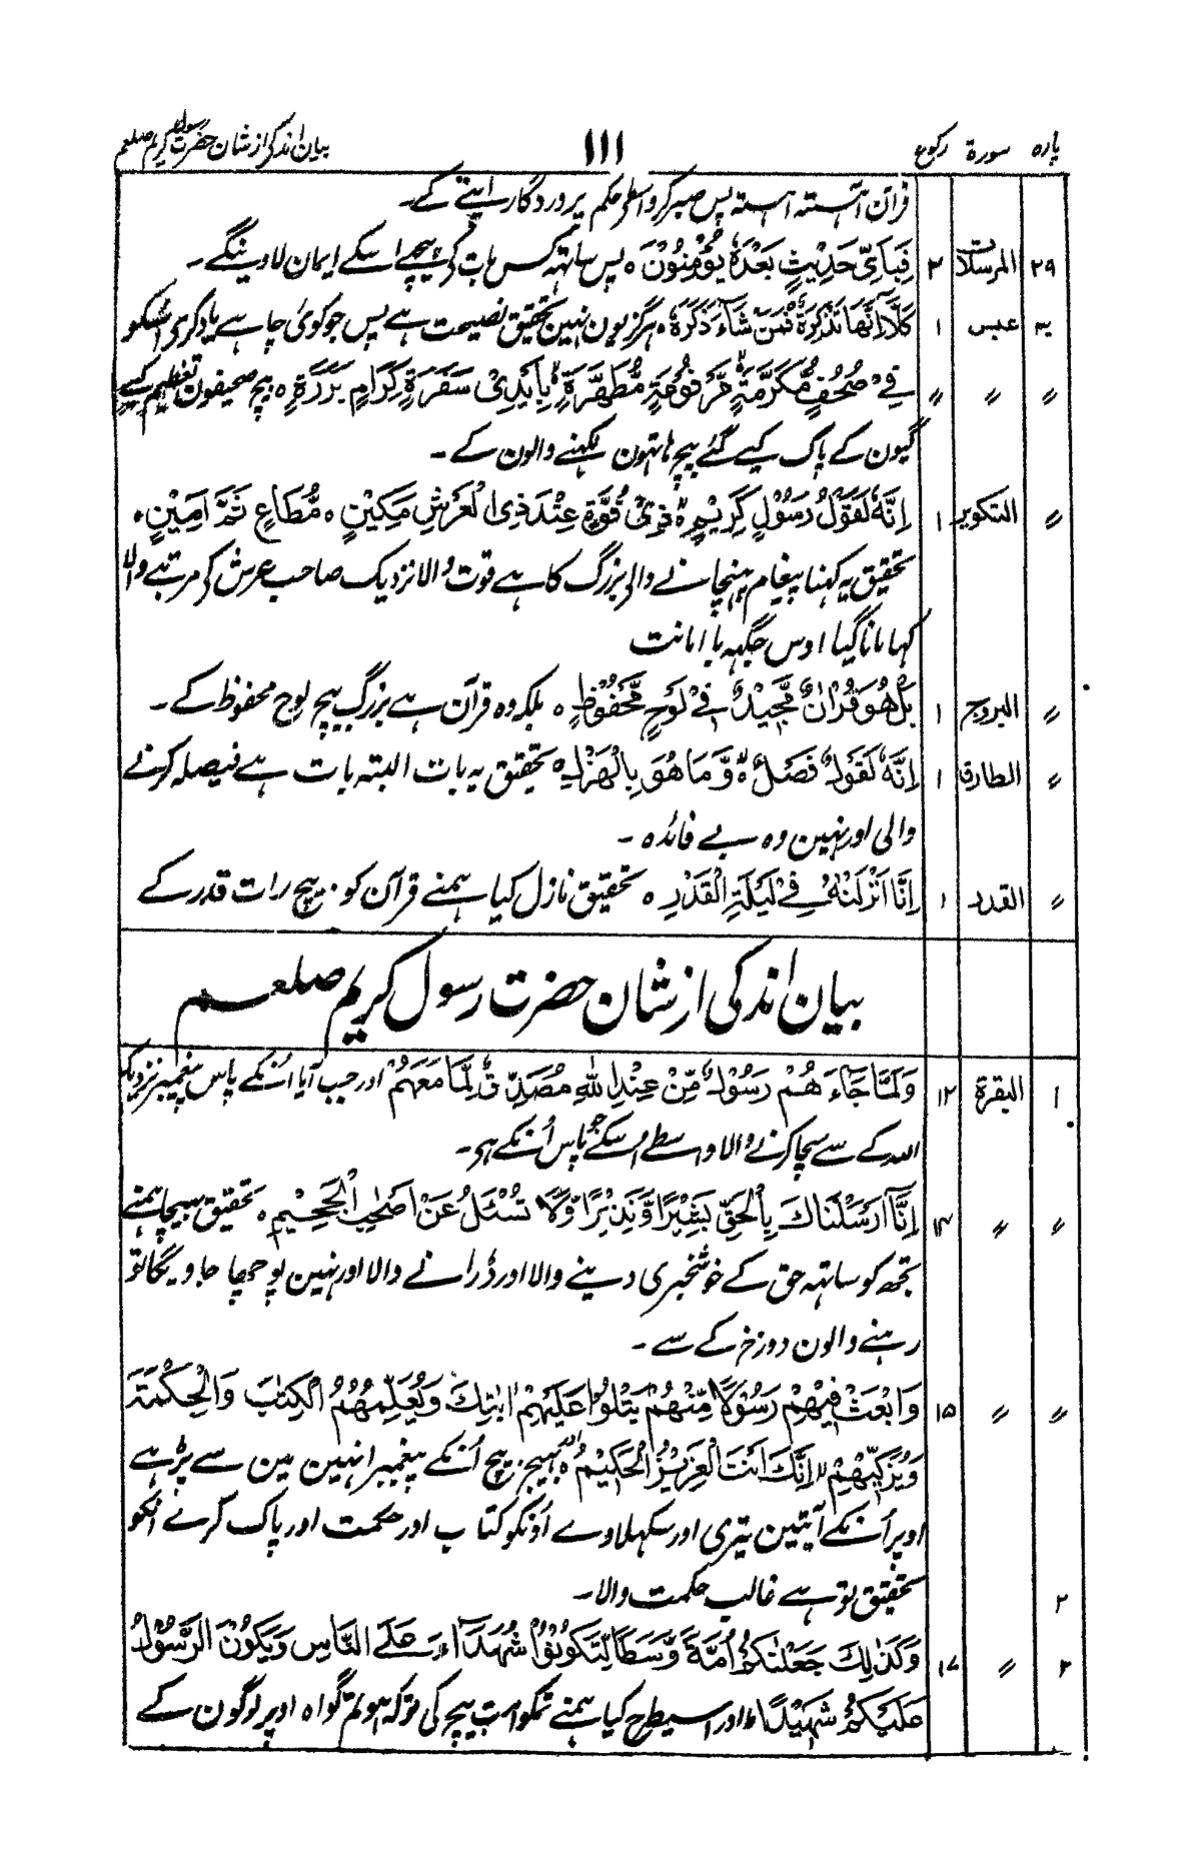 پارہ سورۃ رکوع ۱۱۱ بیان اندکی از شان حضرت رسول کریم صلعم
قرآن آہستہ آہستہ پس صبر کر واسطے حکم پروردگار اپنے کے۔
۲۹ المرسلات ۲ فَبِاَیِّ حَدِیْثٍۭ بَعْدَهٗ یُؤْمِنُوْنَ ہ پس ساتہہ کس بات کی پیچھے اسکے ایمان لاوینگے۔
عبس ۱ كَلَّاۤ اِنَّهَا تَذْكِرَةٌ فَمَنْ شَآءَ ذَكَرَهٗ ہ ہرگز یون نہین تحقیق نصیحت ہے پس جو کوئ چاہے یاد کری اُسکو
〃 〃 〃 فِیْ صُحُفٍ مُّكَرَّمَةٍ مَّرْفُوْعَةٍ مُّطَهَّرَةٍ بِاَیْدِیْ سَفَرَةٍ كِرَامٍ بَرَرَةٍ ہ بیچ صحیفون تعظیم کیے
گیون کے پاک کیے گئے بیچ ہاتہون لکھنے والون کے۔
〃 التکویر ۱ اِنَّهٗ لَقَوْلُ رَسُوْلٍ كَرِیْمٍ ذِیْ قُوَّةٍ عِنْدَ ذِی الْعَرْشِ مَكِیْنٍ ہ مُّطَاعٍ ثَمَّ اَمِیْنٍ ہ
تحقیق یہ کہنا پیغام پہنچانے والی بزرگ کا ہے قوت والا نزدیک صاحب عرش کی مرتبے والا
کہا مانا گیا اوس جگہہ با امانت
〃 البروج ۱ بَلْ هُوَ قُرْاٰنٌ مَّجِیْدٌ فِیْ لَوْحٍ مَّحْفُوْظٍ ہ بلکہ وہ قرآن ہے بزرگ بیچ لوح محفوظ کے۔
〃 الطارق ۱ اِنَّهٗ لَقَوْلٌ فَصْلٌ ہ وَّمَا هُوَ بِالْهَزْلِ ہ تحقیق یہ بات البتہ بات ہے فیصلہ کرنے
والی اور نہین وہ بے فائدہ۔
〃 القدر ۱ اِنَّاۤ اَنْزَلْنٰهُ فِیْ لَیْلَةِ الْقَدْرِ ہ تحقیق نازل کیا ہمنے قرآن کو بیچ رات قدر کے
بیان اندکی از شان حضرت رسول کریم صلعم
۱ البقرۃ ۱۲ وَلَمَّا جَآءَهُمْ رَسُوْلٌ مِّنْ عِنْدِ اللهِ مُصَدِّقٌ لِّمَا مَعَهُمْ اور جب آیا اُنکے پاس پیغمبر نزدیک
اللہ کے سے سچا کرنے والا واسطے اُسکے جو پاس اُنکے ہو۔
〃 〃 ۱۴ اِنَّاۤ اَرْسَلْنَاكَ بِالْحَقِّ بَشِیْرًا وَّنَذِیْرًا وَّلَا تُسْئَلُ عَنْ اَصْحٰبِ الْجَحِیْمِ ہ تحقیق بھیجا ہمنے
تجھ کو ساتہہ حق کے خوشخبری دینے والا اور ڈرانے والا اور نہین پوچھا جاویگا تو
رہنے والون دوزخ کے سے۔
〃 〃 ۱۵ وَابْعَثْ فِیْهِمْ رَسُوْلًا مِّنْهُمْ یَتْلُوْا عَلَیْهِمْ اٰیٰتِكَ وَیُعَلِّمُهُمُ الْكِتٰبَ وَالْحِكْمَةَ
وَیُزَكِّیْهِمْ اِنَّكَ اَنْتَ الْعَزِیْزُ الْحَكِیْمُ ہ بھیج بیچ اُنکے پیغمبر انہین مین سے پڑہے
اوپر اُنکے آیتین تیری اور سکہلاوے اُونکو کتاب اور حکمت اور پاک کرے انکو
۲ تحقیق تو ہے غالب حکمت والا۔
۲ 〃 ۱۷ وَكَذٰلِكَ جَعَلْنٰكُمْ اُمَّةً وَّسَطًا لِّتَكُوْنُوْا شُهَدَآءَ عَلَی النَّاسِ وَیَكُوْنَ الرَّسُوْلُ
عَلَیْكُمْ شَهِیْدًا ہ اور اسیطرح کیا ہمنے تمکو امت بیچ کی توکہ ہو تم گواہ اوپر لوگون کے